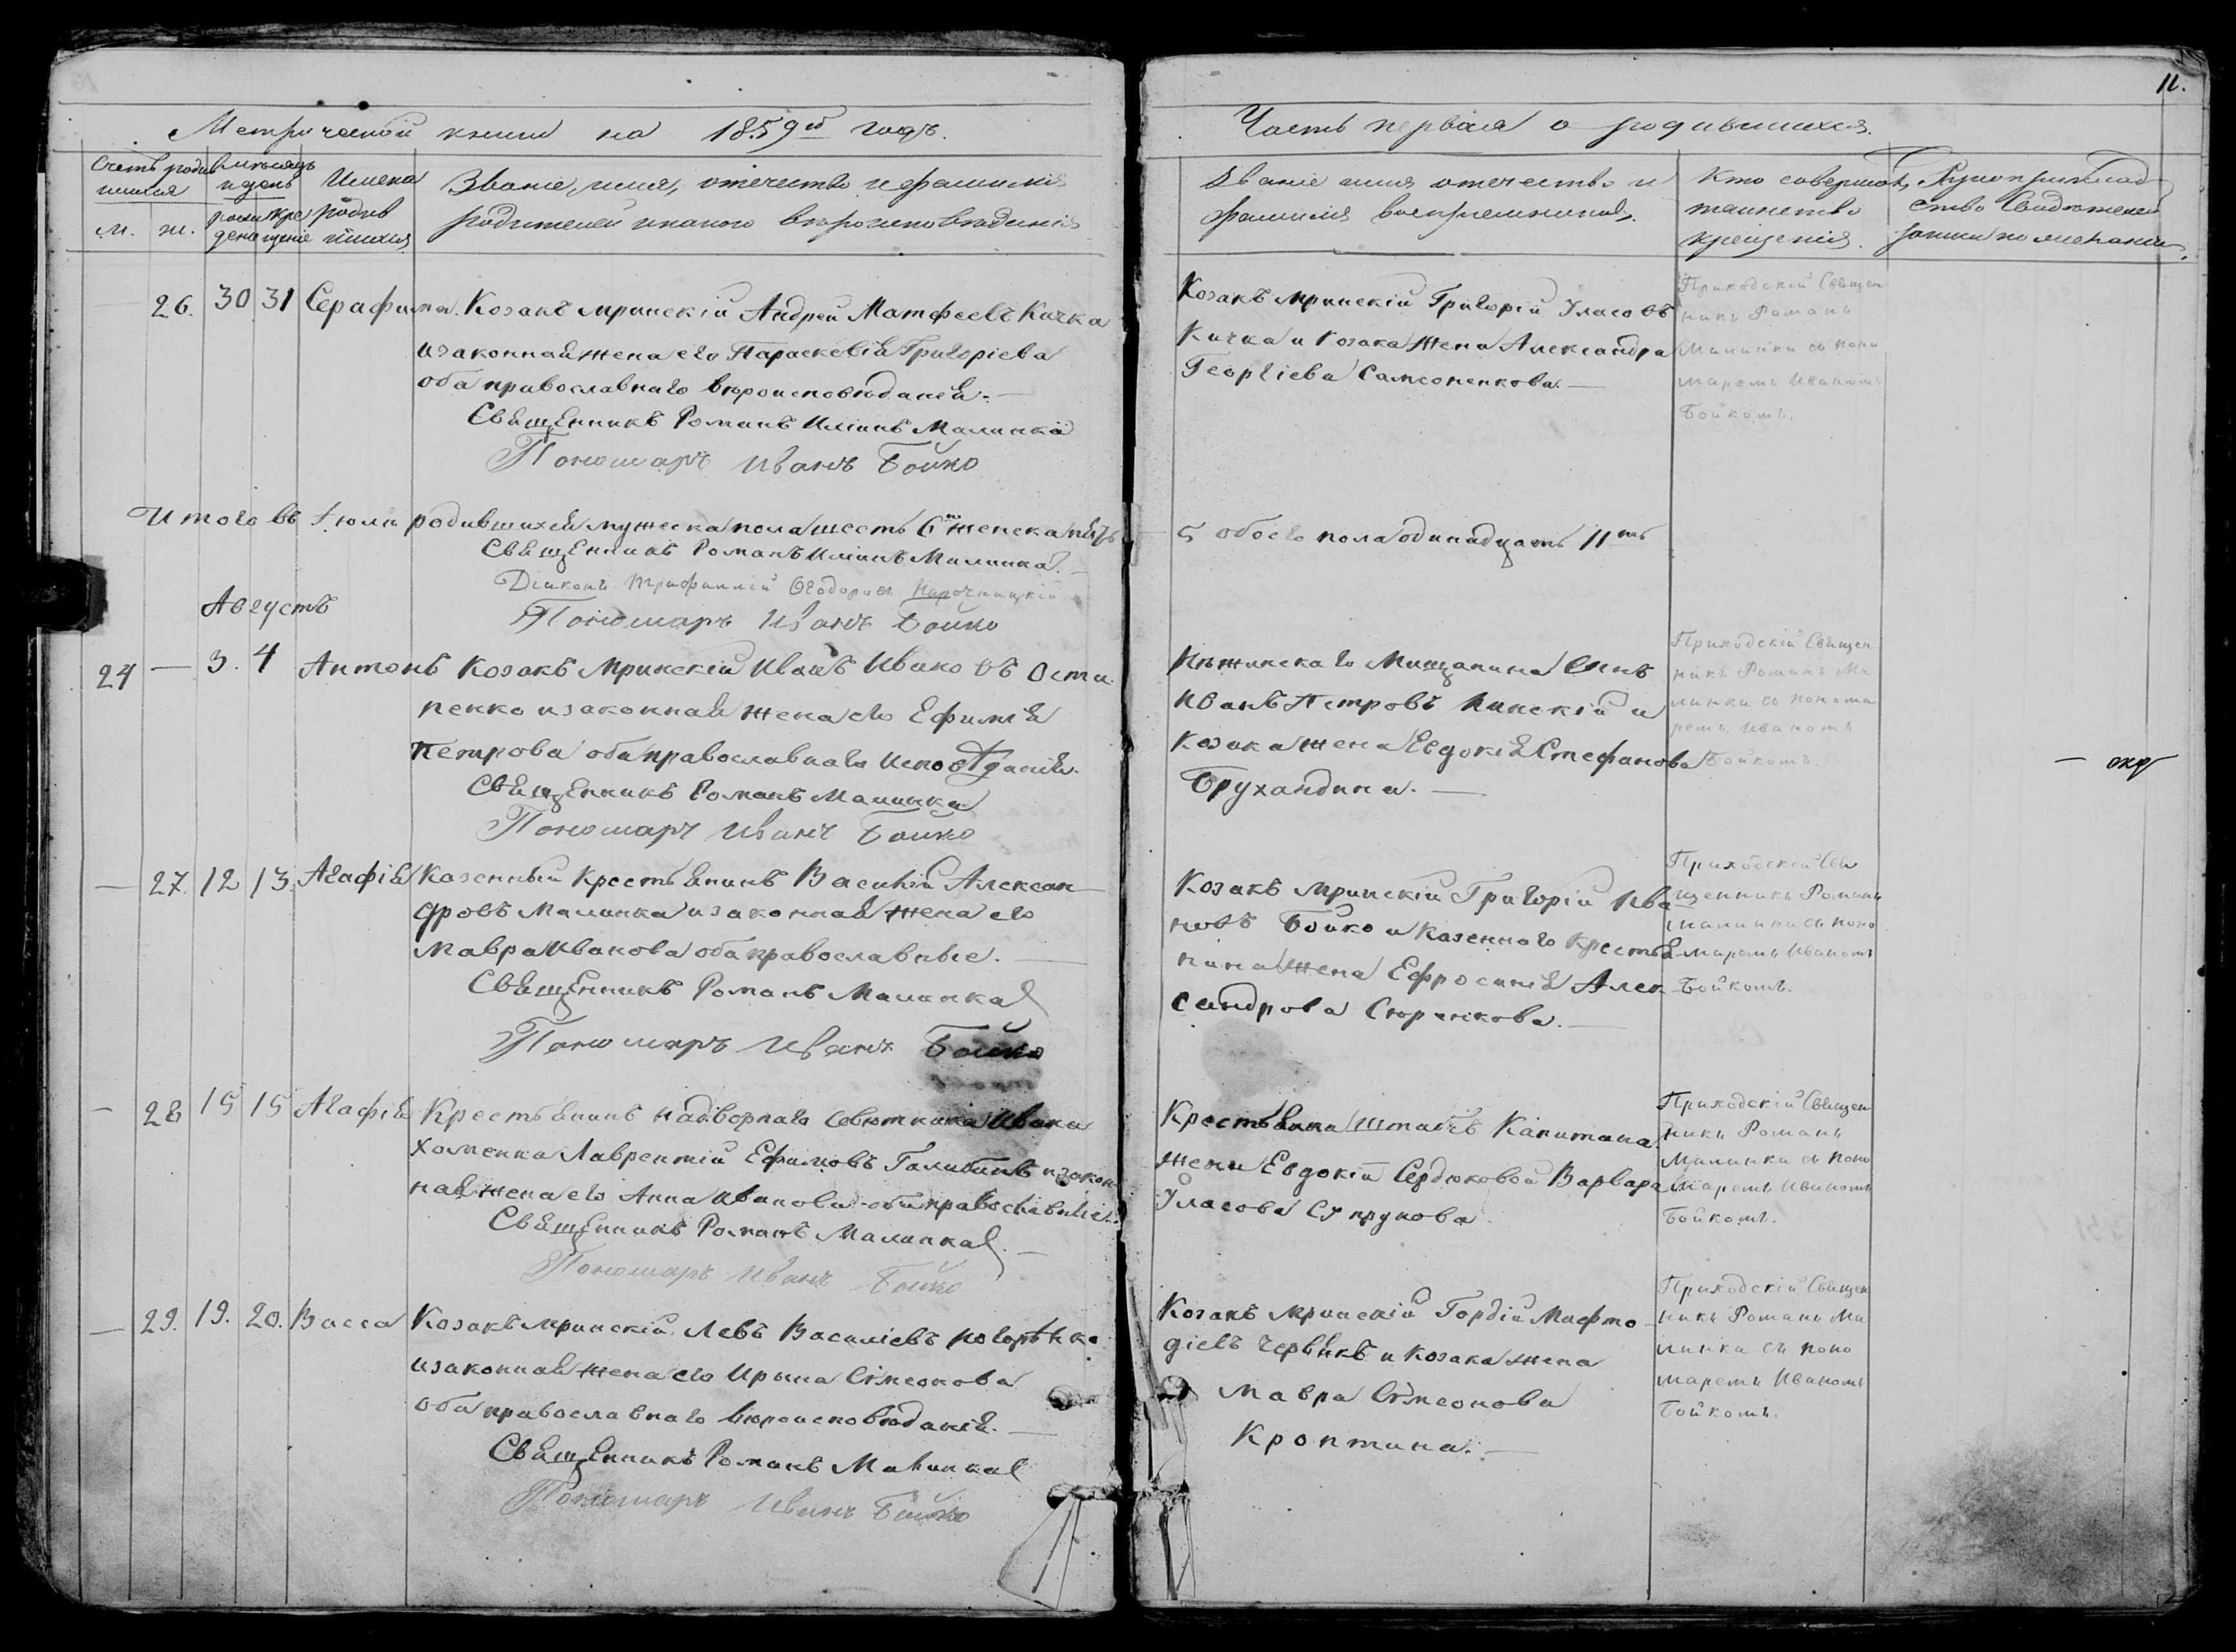 11.
Метрической книги на 1859й годъ.
Часть первая о родившихся.
Счетъ родив
шихся
м. ж.
Мѣсяцъ
и день
рож
денія
кре
щенія
Имена
родив
шихся
Званіе, имя, отечество и фамилія
родителей и какого вѣроисповѣданія
Званіе имя отечество и
фамилія воспріемниковъ.
Кто совершалъ
таинство
крещенія.
Рукоприклад
ство свидѣтелей
записи по желанію
26. 30 31 Серафима. Козакъ мринскій Андрей Матфеевъ Кичка
и законная жена его Параскевія Григоріева
оба православнаго вѣроисповѣданія.
Священникъ Романъ Малинка
Пономарь Иванъ Бойко
Козакъ мринскій Григорій Уласовъ
Кичка и козака жена Александра
Георгіева Самсоненкова.
Приходскій Священ
никъ Романъ
Малинка съ поно
маремъ Иваномъ
Бойкомъ.
Итого въ Іюли родившихся мужеска пола шесть 6 женска пять
5 обоего пола одинадцать 11ть
Священникъ Романъ Малинка.
Діаконъ Ѳеодоровъ
Пономарь Иванъ Бойко
Августъ
24 — 3. 4 Антонъ Козакъ Мринскій Иванъ Ивановъ Оста
пенко и законная жена его Ефимія
Петрова оба православнаго исповѣданія.
Священникъ Романъ Малинка
Пономарь Иванъ Бойко
Нѣжинскаго Мищанина Сынъ
Иванъ Петровъ и
козака жена Евдокія Стефанова
Брухандина.
Приходскій Священ
никъ Романъ Ма
линка съ понома
ремъ Иваномъ
Бойкомъ.
— 27. 12 13. Агафія Казенный Крестьянинъ Василій Алексан
дровъ Малинка и законная жена его
Мавра Иванова оба православные.
Священникъ Романъ Малинка
Пономарь Иванъ Бойко
Козакъ мринскій Григорій Ива
новъ Бойко и казенного крестья
нина жена Ефросинія Алек
сандрова Сюренкова.
Приходскій Свя
щенникъ Романъ
Малинка съ поно
маремъ Иваномъ
Бойкомъ.
— 28 15 15 Агафія Крестьянинъ надворнаго совѣтника Ивана
Хоменка Лаврентій Ефимовъ и закон
ная жена его Анна Иванова оба православные.
Священникъ Романъ Малинка.
Пономарь Иванъ Бойко
Крестьянка Штабсъ Капитана
жены Евдокіи Сердюковой Варвара
Уласова Супрунова.
Приходскій Священ
никъ Романъ
Малинка съ поно
маремъ Иваномъ
Бойкомъ.
— 29. 19. 20. Васса Козакъ мринскій Левъ Василіевъ
и законная жена его Ирина Симеонова
оба православнаго вѣроисповѣданія.
Священникъ Романъ Малинка
Пономарь Иванъ Бойко
Козакъ мринскій Гордій Мефо
діевъ Червякъ и козака жена
Мавра Симеонова
Кроптина.
Приходскій Священ
никъ Романъ Ма
линка съ поно
маремъ Иваномъ
Бойкомъ.